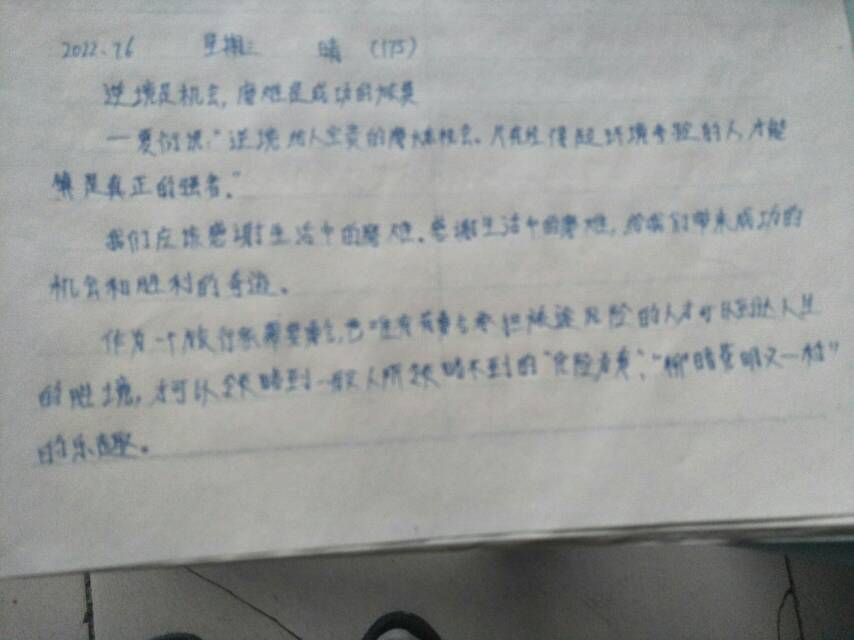 2022.7.6 星期三 晴 (175)
逆境是机会,磨难是成功的
一夏衍说:"逆境给人宝贵的磨炼机会。只有经得起环境考验的人,才能
算是真正的强者。"
我们应该感谢生活中的磨难。感谢生活中的磨难,给我们带来成功的
机会和胜利的奇迹。
作为一个旅行家需要勇气,也唯有有勇气来担被这风险的人才可以到达人生
的胜境,才可以领略到一般人所领略不到的"危险 "、"柳暗花明又一村"
的乐趣。